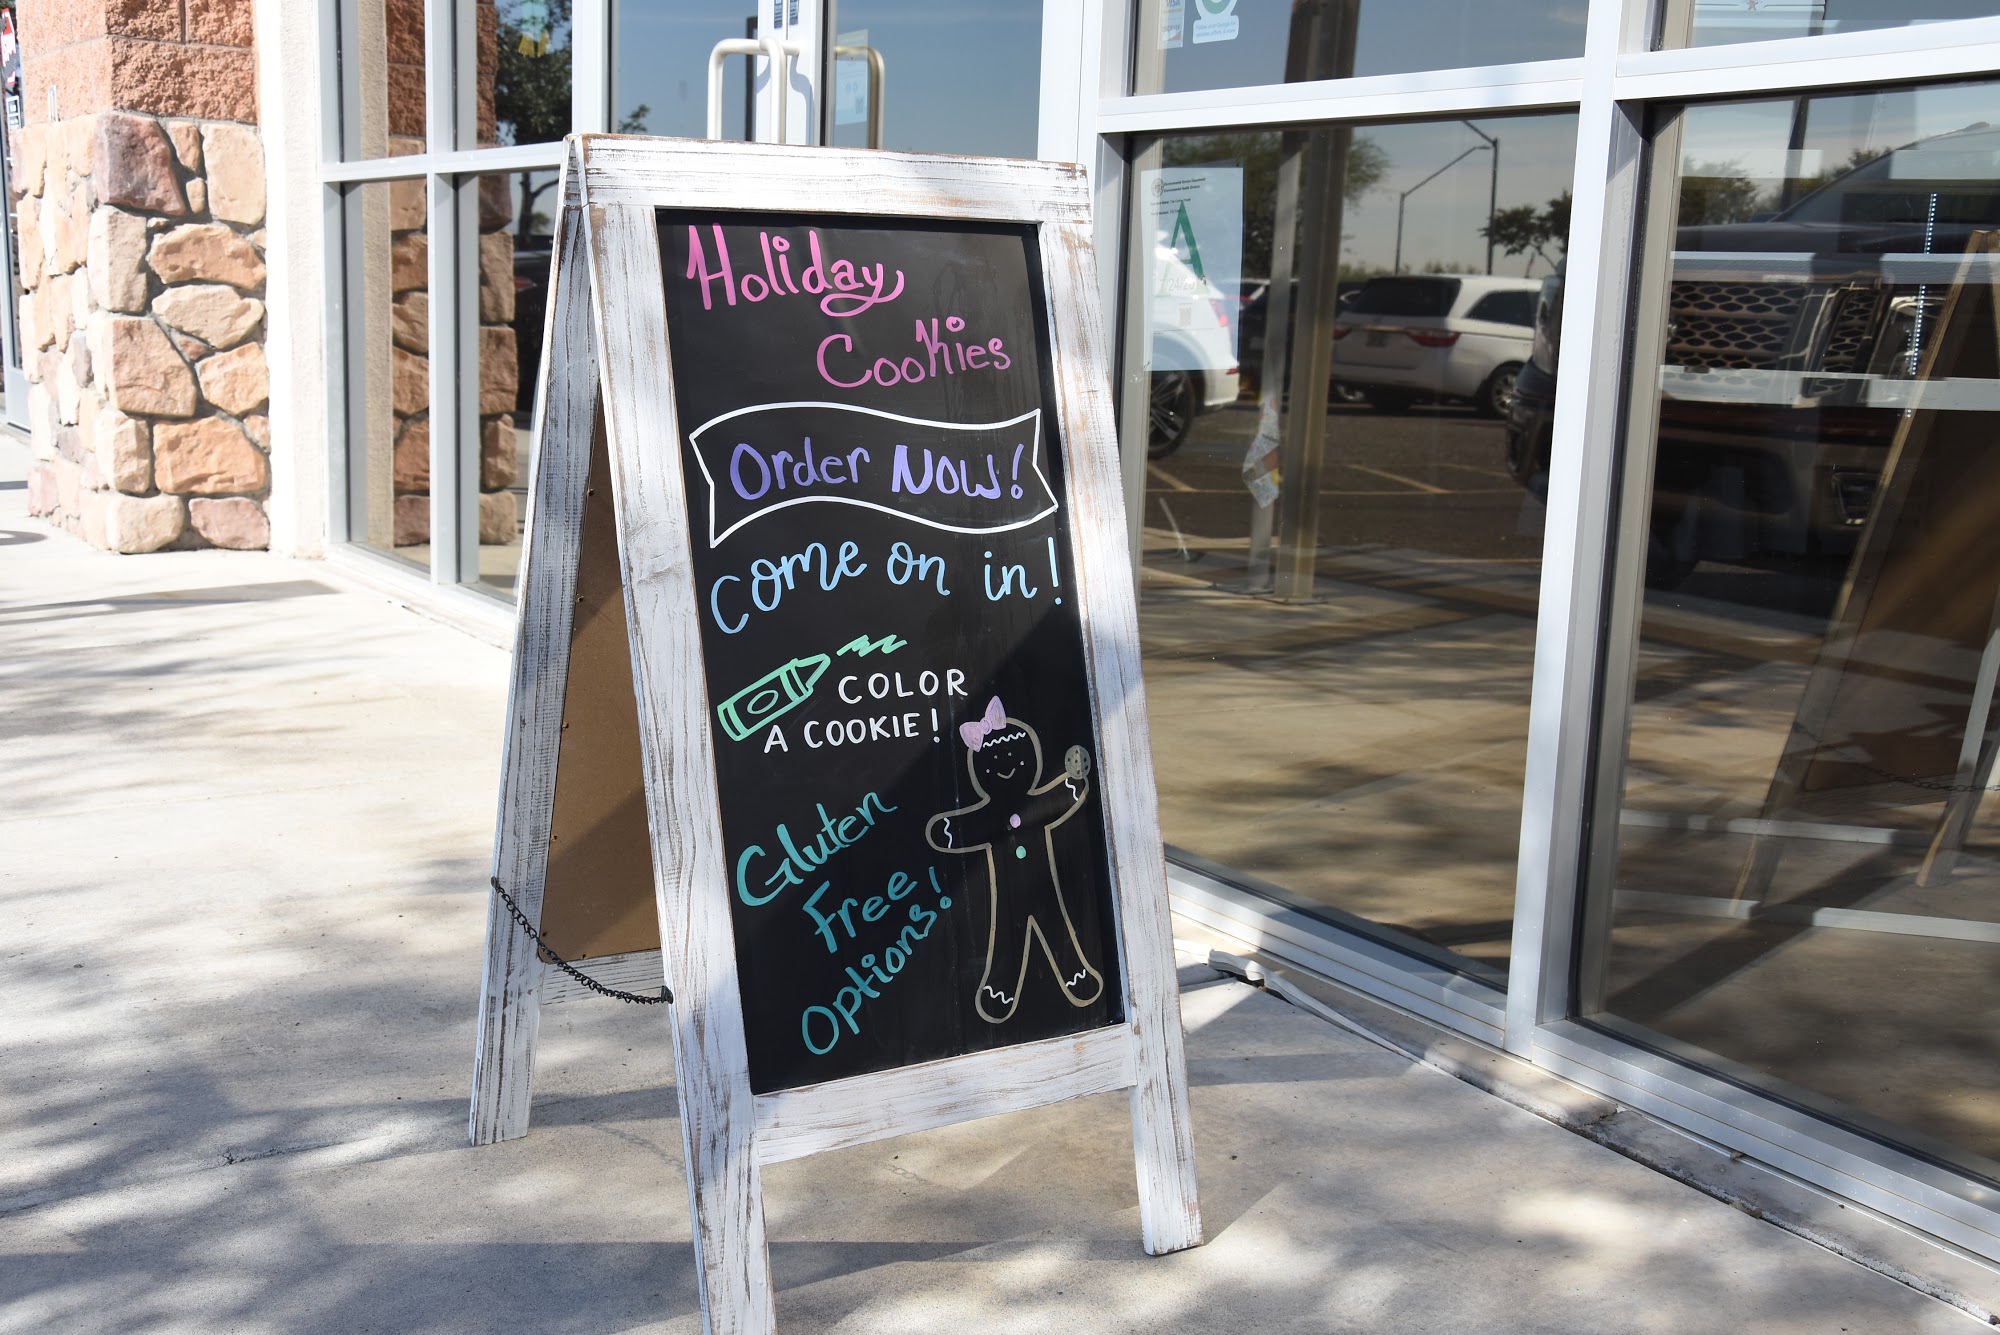 Holiday
Cookies
Order Now!
Come on in!
COLOR
A COOKIE!
Gluten
Free
Options!
VISA
A